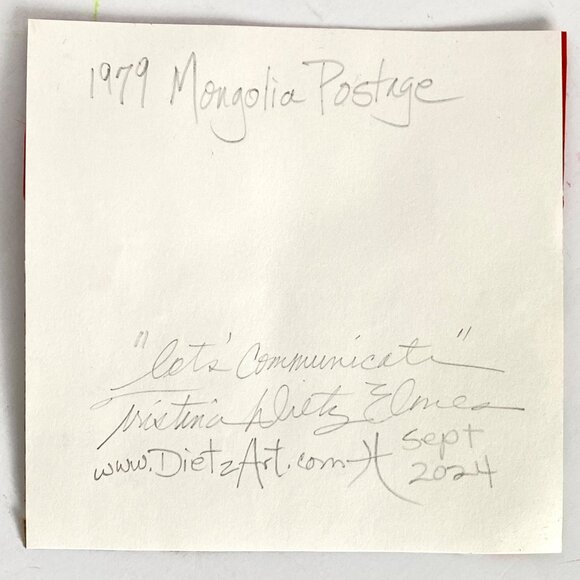 1979 Mongolia Postage
"lets' Communicate"
Tristina Dietz Elmes
www.DietzArt.com
Sept
2024